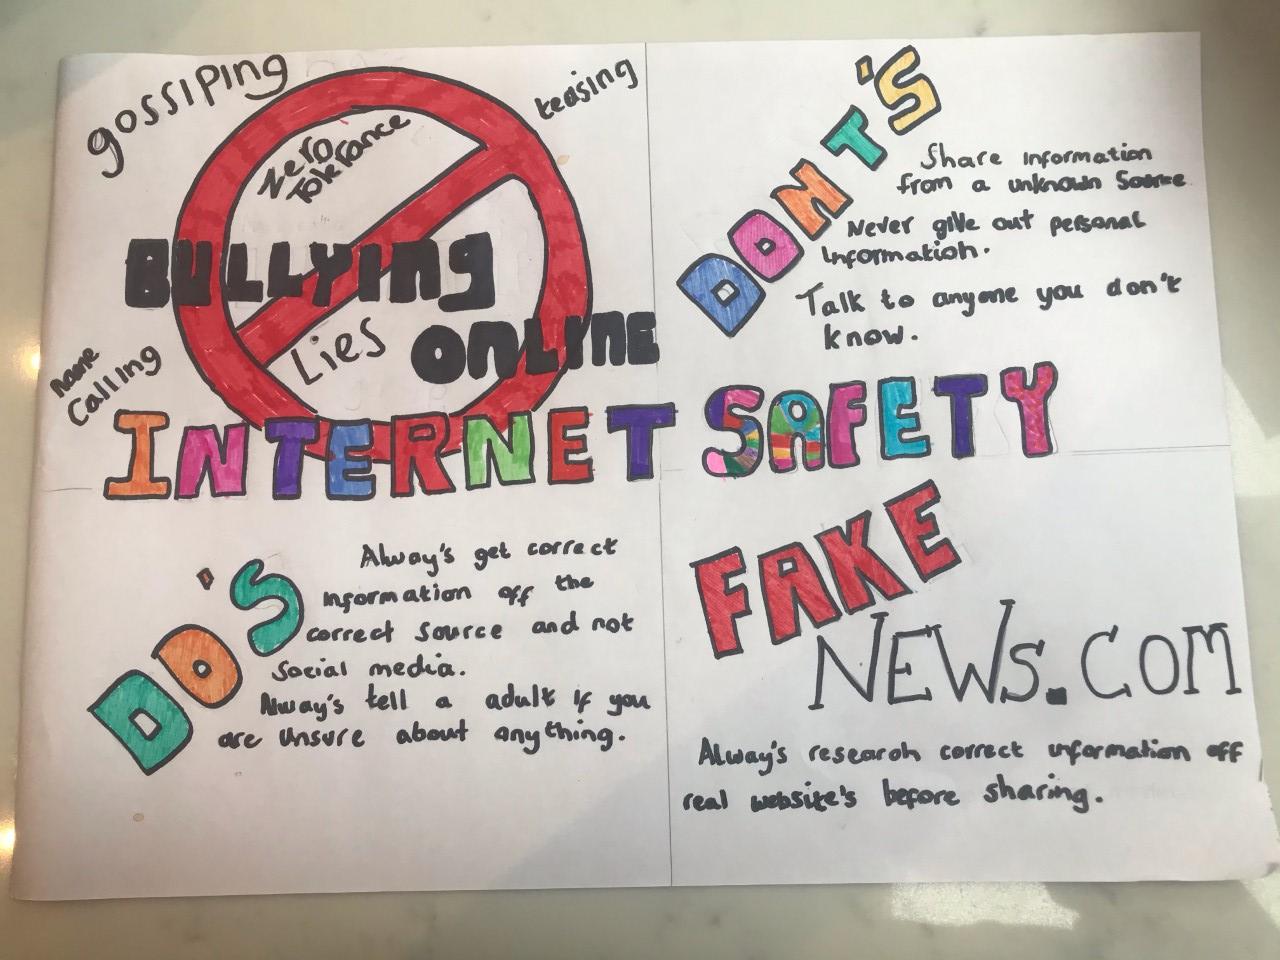 gossiping
teasing
Zero
Tolerance
BULLYING
Lies
ONLINE
name
Calling
DONT'S
Share information
from a unknown Source.
Never give out personal
information.
Talk to anyone you don't
know.
INTERNET SAFETY
DO'S
Alway's get correct
information off the
correct source and not
Social media.
Alway's tell a adult if you
are unsure about anything.
FAKE
NEWS.COM
Alway's research correct information off
real website's before sharing.